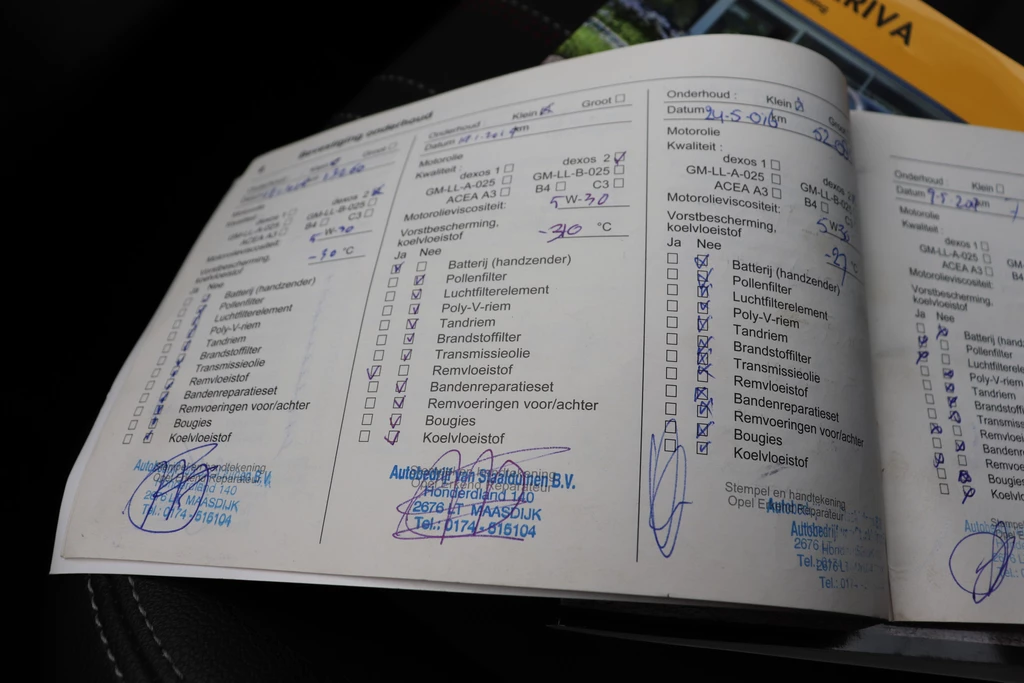 RIVA
Bevestiging onderhoud
Groot
dexos 1
dexos 2
GM-LL-A-025 GM-LL-B-025
ACEA A3 B4 C3
Motorolieviscositeit:
5 W-30
Vorstbescherming,
koelvloeistof
-30 °C
Ja Nee
Batterij (handzender)
Pollenfilter
Luchtfilterelement
Poly-V-riem
Tandriem
Brandstoffilter
Transmissieolie
Remvloeistof
Bandenreparatieset
Remvoeringen voor/achter
Bougies
Koelvloeistof
Stempel en handtekening
Opel Erkend Reparateur
2676 LT MAASDIJK
Tel.: 0174 - 516104
Onderhoud : Klein Groot
Datum
km
Motorolie
Kwaliteit:
dexos 1
dexos 2
GM-LL-A-025 GM-LL-B-025
ACEA A3 B4 C3
Motorolieviscositeit:
5 W-30
Vorstbescherming,
koelvloeistof
-30 °C
Ja Nee
Batterij (handzender)
Pollenfilter
Luchtfilterelement
Poly-V-riem
Tandriem
Brandstoffilter
Transmissieolie
Remvloeistof
Bandenreparatieset
Remvoeringen voor/achter
Bougies
Koelvloeistof
Stempel en handtekening
Opel Erkend Reparateur
Autobedrijf van Staalduinen B.V.
Honderdland 140
2676 LT MAASDIJK
Tel.: 0174 - 516104
Onderhoud : Klein
Datum
km
Motorolie
Kwaliteit:
dexos 1
dexos 2
GM-LL-A-025 GM-LL-B
ACEA A3 B4 C3
Motorolieviscositeit:
5W30
Vorstbescherming,
koelvloeistof
-27 °C
Ja Nee
Batterij (handzender)
Pollenfilter
Luchtfilterelement
Poly-V-riem
Tandriem
Brandstoffilter
Transmissieolie
Remvloeistof
Bandenreparatieset
Remvoeringen voor/achter
Bougies
Koelvloeistof
Stempel en handtekening
Opel Erkend Reparateur
Autobedrijf
2676 LT
Tel.:
Onderhoud : Klein
Datum
Motorolie
Kwaliteit:
dexos 1
GM-LL-A-025
ACEA A3
Motorolieviscositeit:
Vorstbescherming,
koelvloeistof
Ja Nee
Batterij (handz
Pollenfilter
Luchtfilterele
Poly-V-riem
Tandriem
Brandstoffi
Transmiss
Remvloei
Bandenre
Remvoe
Bougies
Koelvl
Stempe